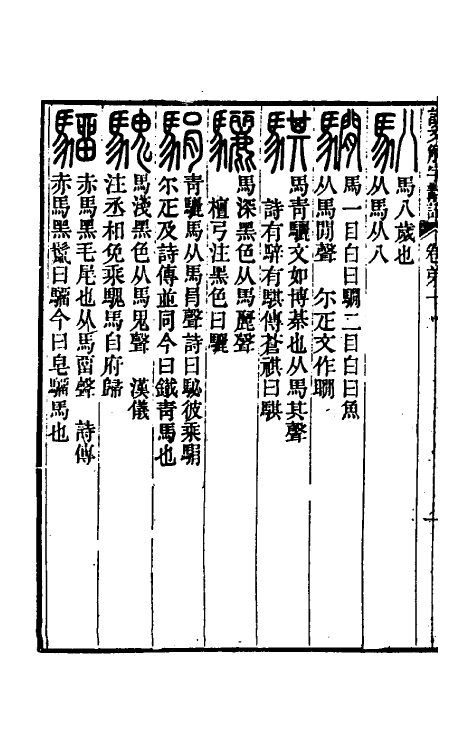 馬八歲也
从馬从八
馬一目白曰騆二目白曰魚
从馬閒聲　尒疋文作瞯
馬青驪文如博棊也从馬其聲
詩有騂有騏傳蒼祺曰騏
馬深黑色从馬麗聲
檀弓注黑色曰驪
青驪馬从馬肙聲詩曰駜彼乘駽
尒疋及詩傳並同今曰鐵青馬也
馬淺黑色从馬鬼聲　漢儀
注丞相免乘騩馬自府歸
赤馬黑毛尾也从馬畱聲　詩傳
赤馬黑鬣曰騮今曰皂騮馬也